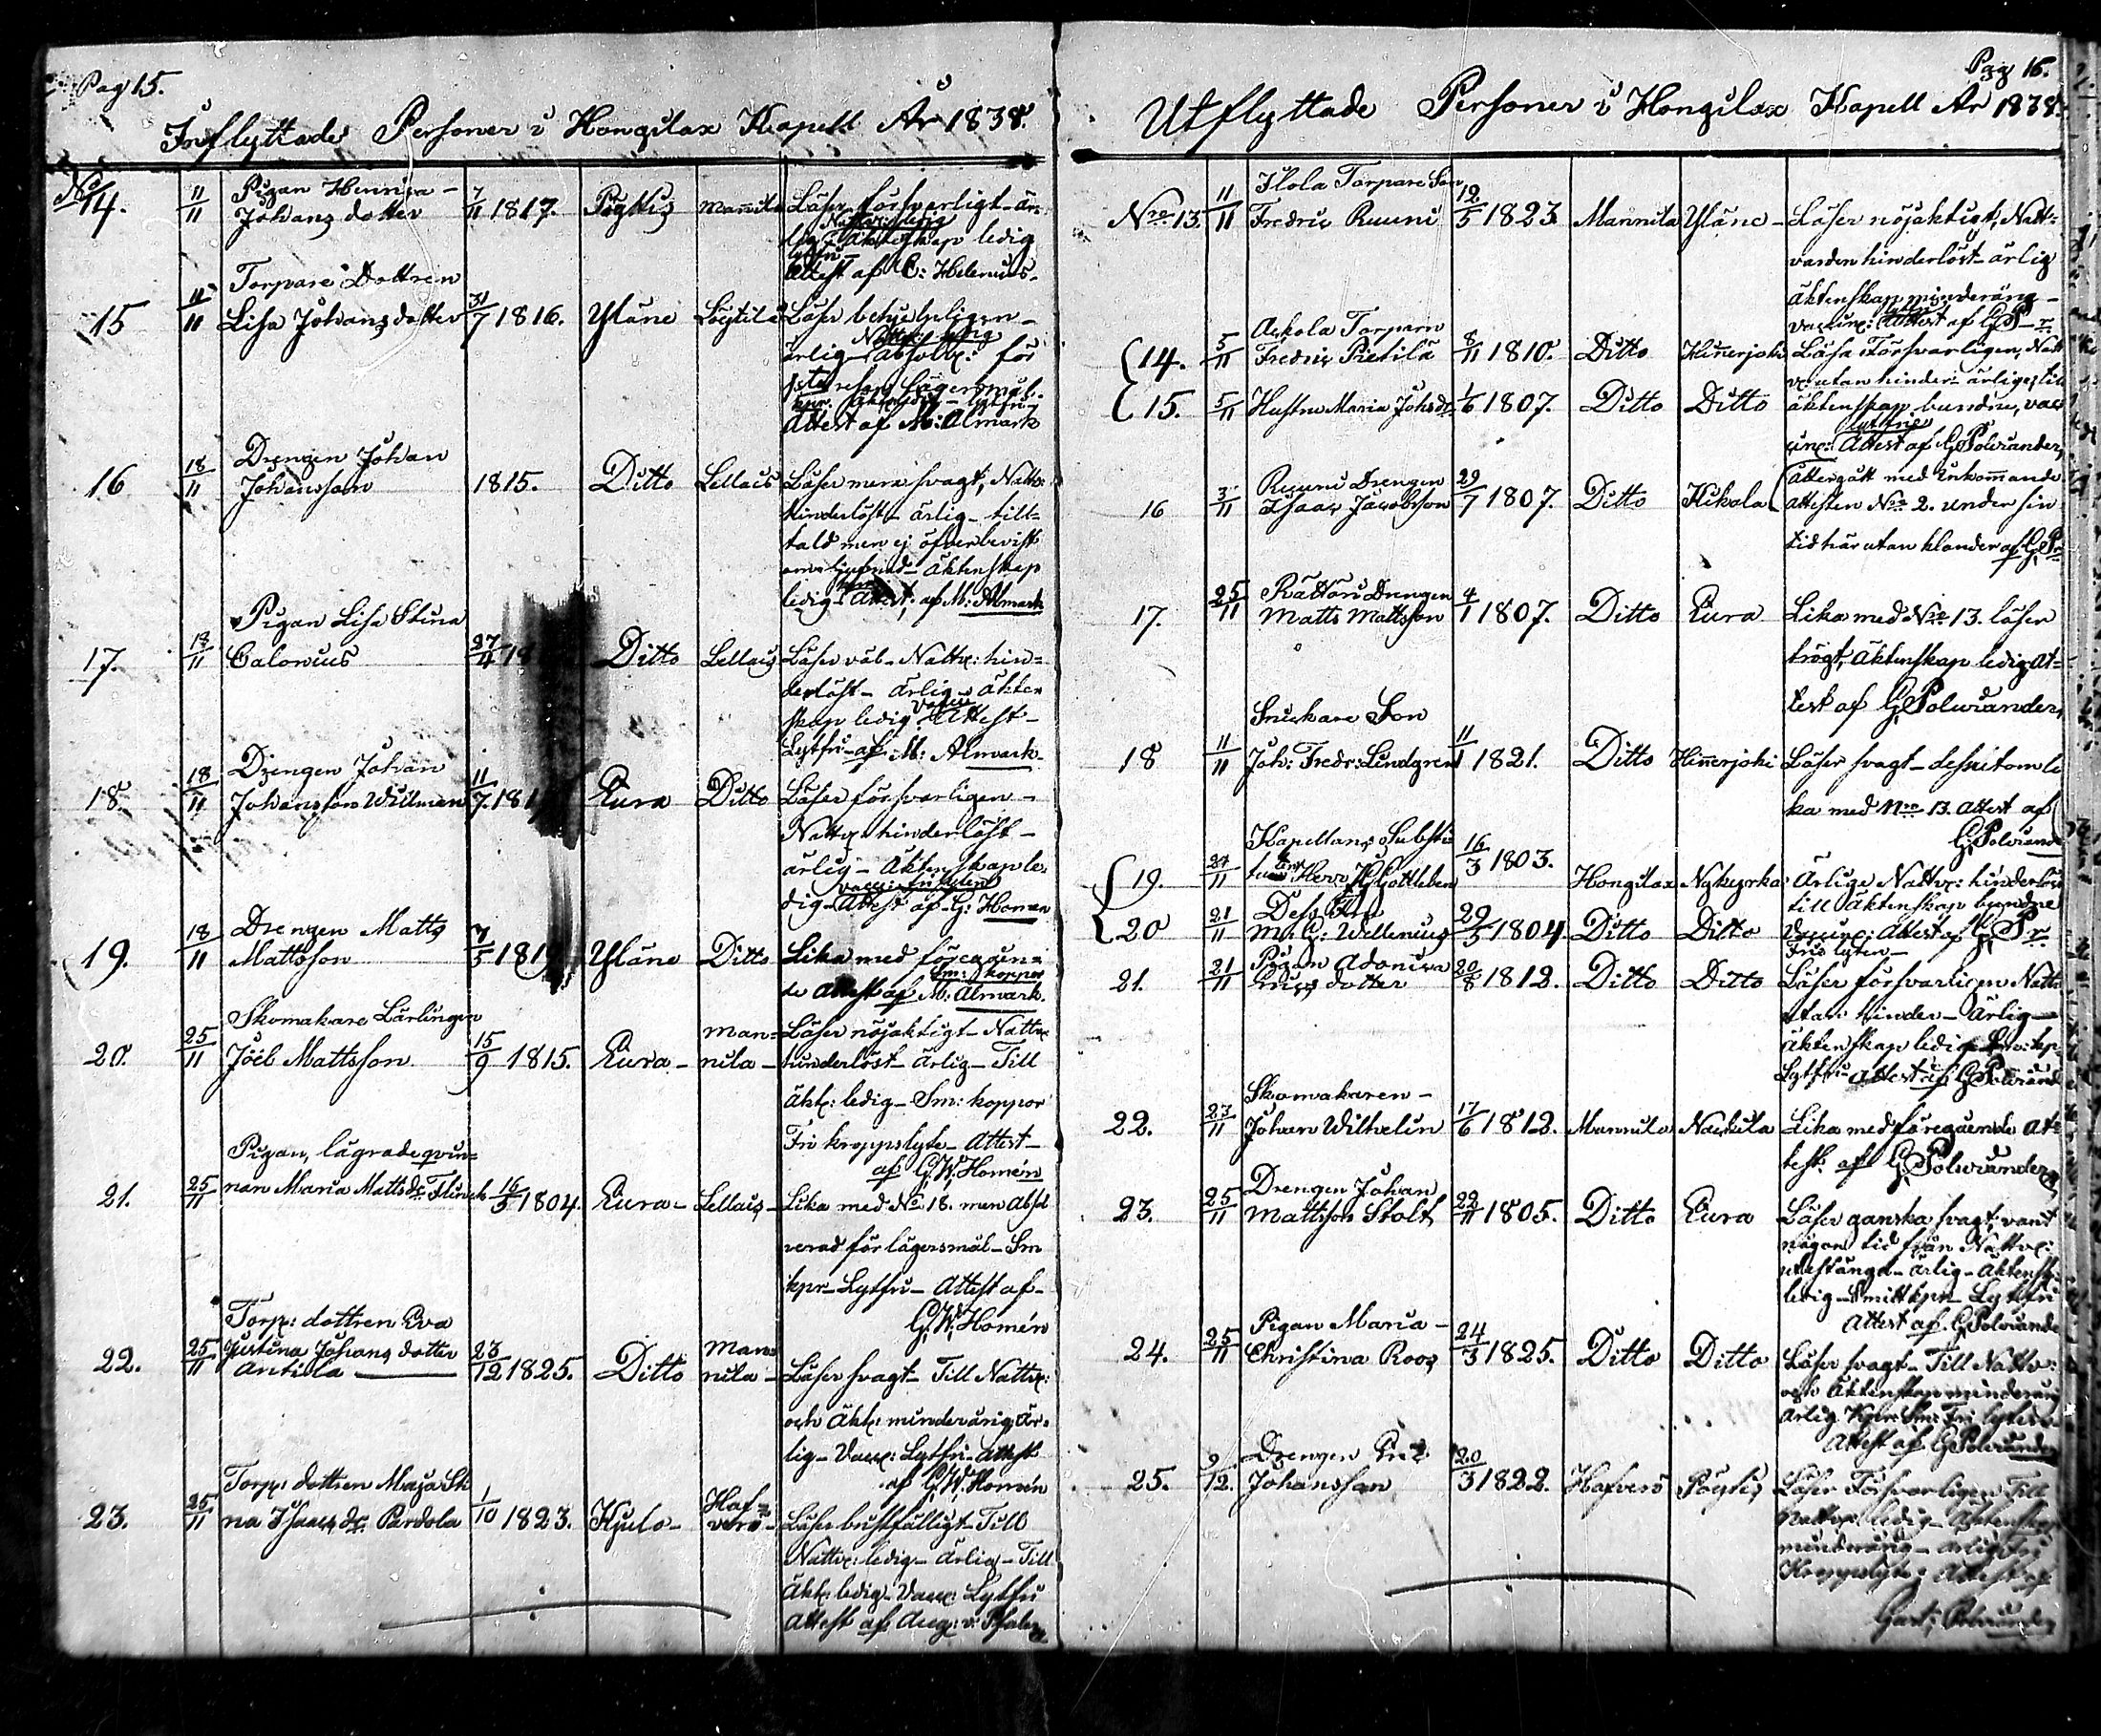 Pag 15.
Inflyttade Personer i Hongilax Kapell År 1838.
No 14. 11/11 Pigan Henrica
Johans dotter 7/11 1817. Pöyttis Mannila Läser försvarligt är
lig Äktenskap ledig
Attest af C: Helenius
Torpare Dottren
15 11/11 Lisa Johans dotter 31/7 1816. Yläne Löytilä Läser
ärlig absolv: för
lägersmål
Attest af M: Almark
Drengen Johan
16 18/11 Johansson 1815. Ditto Lellais Läser mera svagt, Nattv:
hinderlöst ärlig till=
tald men ej öfverbevist
om Äktenskap
ledig Attest af M: Almark
Pigan Lisa Stina
17. 18/11 Calonius 27/4 Ditto Lellais Läser väl Nattv: hin=
derlöst ärlig äkten
skap ledig Vacc: Attest
Lytfri af M: Almark
Drengen Johan
18. 18/11 Johansson Willman 11/7 Eura Ditto Läser försvarligen
Nattv: hinderlöst
ärlig Äktenskap le=
dig Attest af G: Homen
Drengen Matts
19. 18/11 Mattsson Yläne Ditto Lika med föregåen=
Sm: koppor
de Attest af M: Almark.
Skomakare Lärlingen
20. 25/11 Joël Mattsson 15/9 1815. Eura Man=
nila Läser nöjaktigt Nattv:
hinderlöst ärlig Till
äkt: ledig Sm: koppor
Fri kroppslyte Attest
af G.W. Homén
Pigan, lägrade qvin=
21. 25/11 nan Maria Matts dr Flinck 16/5 1804. Eura Lellais Lika med No 18. men Absol
verad för lägersmål Sm
kpr Lytfri Attest af
G.W. Homén
Torp: dottren Eva
22. 25/11 Justina Johans dotter
Antila 23/12 1825. Ditto Man=
nila Läser svagt Till Nattv:
och Äkt: minderårig är=
lig Vacc: Lytfri Attest
af G.W. Homén
Torp: dottren Maja Sti
23. 25/11 na Isaacs dr Pardola 1/10 1823. Kjulo Haf=
verö Läser bristfälligt Till
Nattv: ledig ärlig Till
äkt: ledig Vacc: Lytfri
Attest af Aug: v: Pfaler
Pag 16.
Utflyttade Personer i Hongilax Kapell År 1838.
Ilola Torpare Son
Nro 13. 11/11 Fredric Ruuni 12/5 1823 Mannila Yläne Läser nöjaktigt, Natt=
varden hinderlöst ärlig
äktenskap minderårig
Attest af
Torparn
14. 5/11 Fredric Pietilä 8/11 1810. Ditto Hinnerjoki Läsa Försvarligen, Natt
v: utan hinder ärliga till
15. 5/11 Hustru Maria Johs dr 1/6 1807. Ditto Ditto äktenskap bundne, vac
Lytfrie
cine: Attest af G Polviander
Ruuni Drengen
16 3/11 Isaac Jacobsson 29/7 1807. Ditto Kikola Återgått med inkommande
attesten Nro 2. under sin
tid här utan klander af
Rättäri Drengen
17. 25/11 Matts Mattsson 4/1 1807. Ditto Eura Lika med Nro 13. läser
trögt, Äktenskap ledig At=
test af G Polviander
Snickare Son
18 11/11 Joh: Fredr: Lindgren 11/1 1821. Ditto Hinnerjoki Läser svagt dessutom li
ka med Nro 13. Attest af
G Polviand
Kapellans Substi
19. 21/11 Herr Gottleben 16/3 1803. Hongilax Nykyrka Ärlige Nattv: hinderlöst
till Äktenskap bundne
20 21/11 M. C: Wellenius 29/5 1804. Ditto Ditto Attest af
Pigan
21. 21/11 dotter 20/8 1812. Ditto Ditto Läser försvarligen Nattv
utan hinder Ärlig
äktenskap ledig Sm: kp
Lytfri Attest af G Polviand
Skomakaren
22. 23/11 Johan Wilhelin 17/6 1812. Mannila Nackila Lika med föregående At=
test af G Polviander
Drengen Johan
23. 25/11 Mattsson Stolt 22/11 1805. Ditto Eura Läser ganska svagt, varit
någon tid från Nattv:
utestängd ärlig Äktensk:
ledig Smittkpr Lytfri
Attest af G Polviande
Pigan Maria
24. 25/11 Christina Roos 24/3 1825. Ditto Ditto Läser svagt Till Nattv:
och Äktenskap minderårig
ärlig Kpr: Sm: Fri lyten
Attest af G Polviander
Drengen
25. 2/12. Johansson 20/3 1822. Hafverö Pöytis Läser Försvarligen Till
Nattv: ledig Äktenskap
minderårig ärlig Fri
Kroppslyte; Attest af
Gust: Polviander